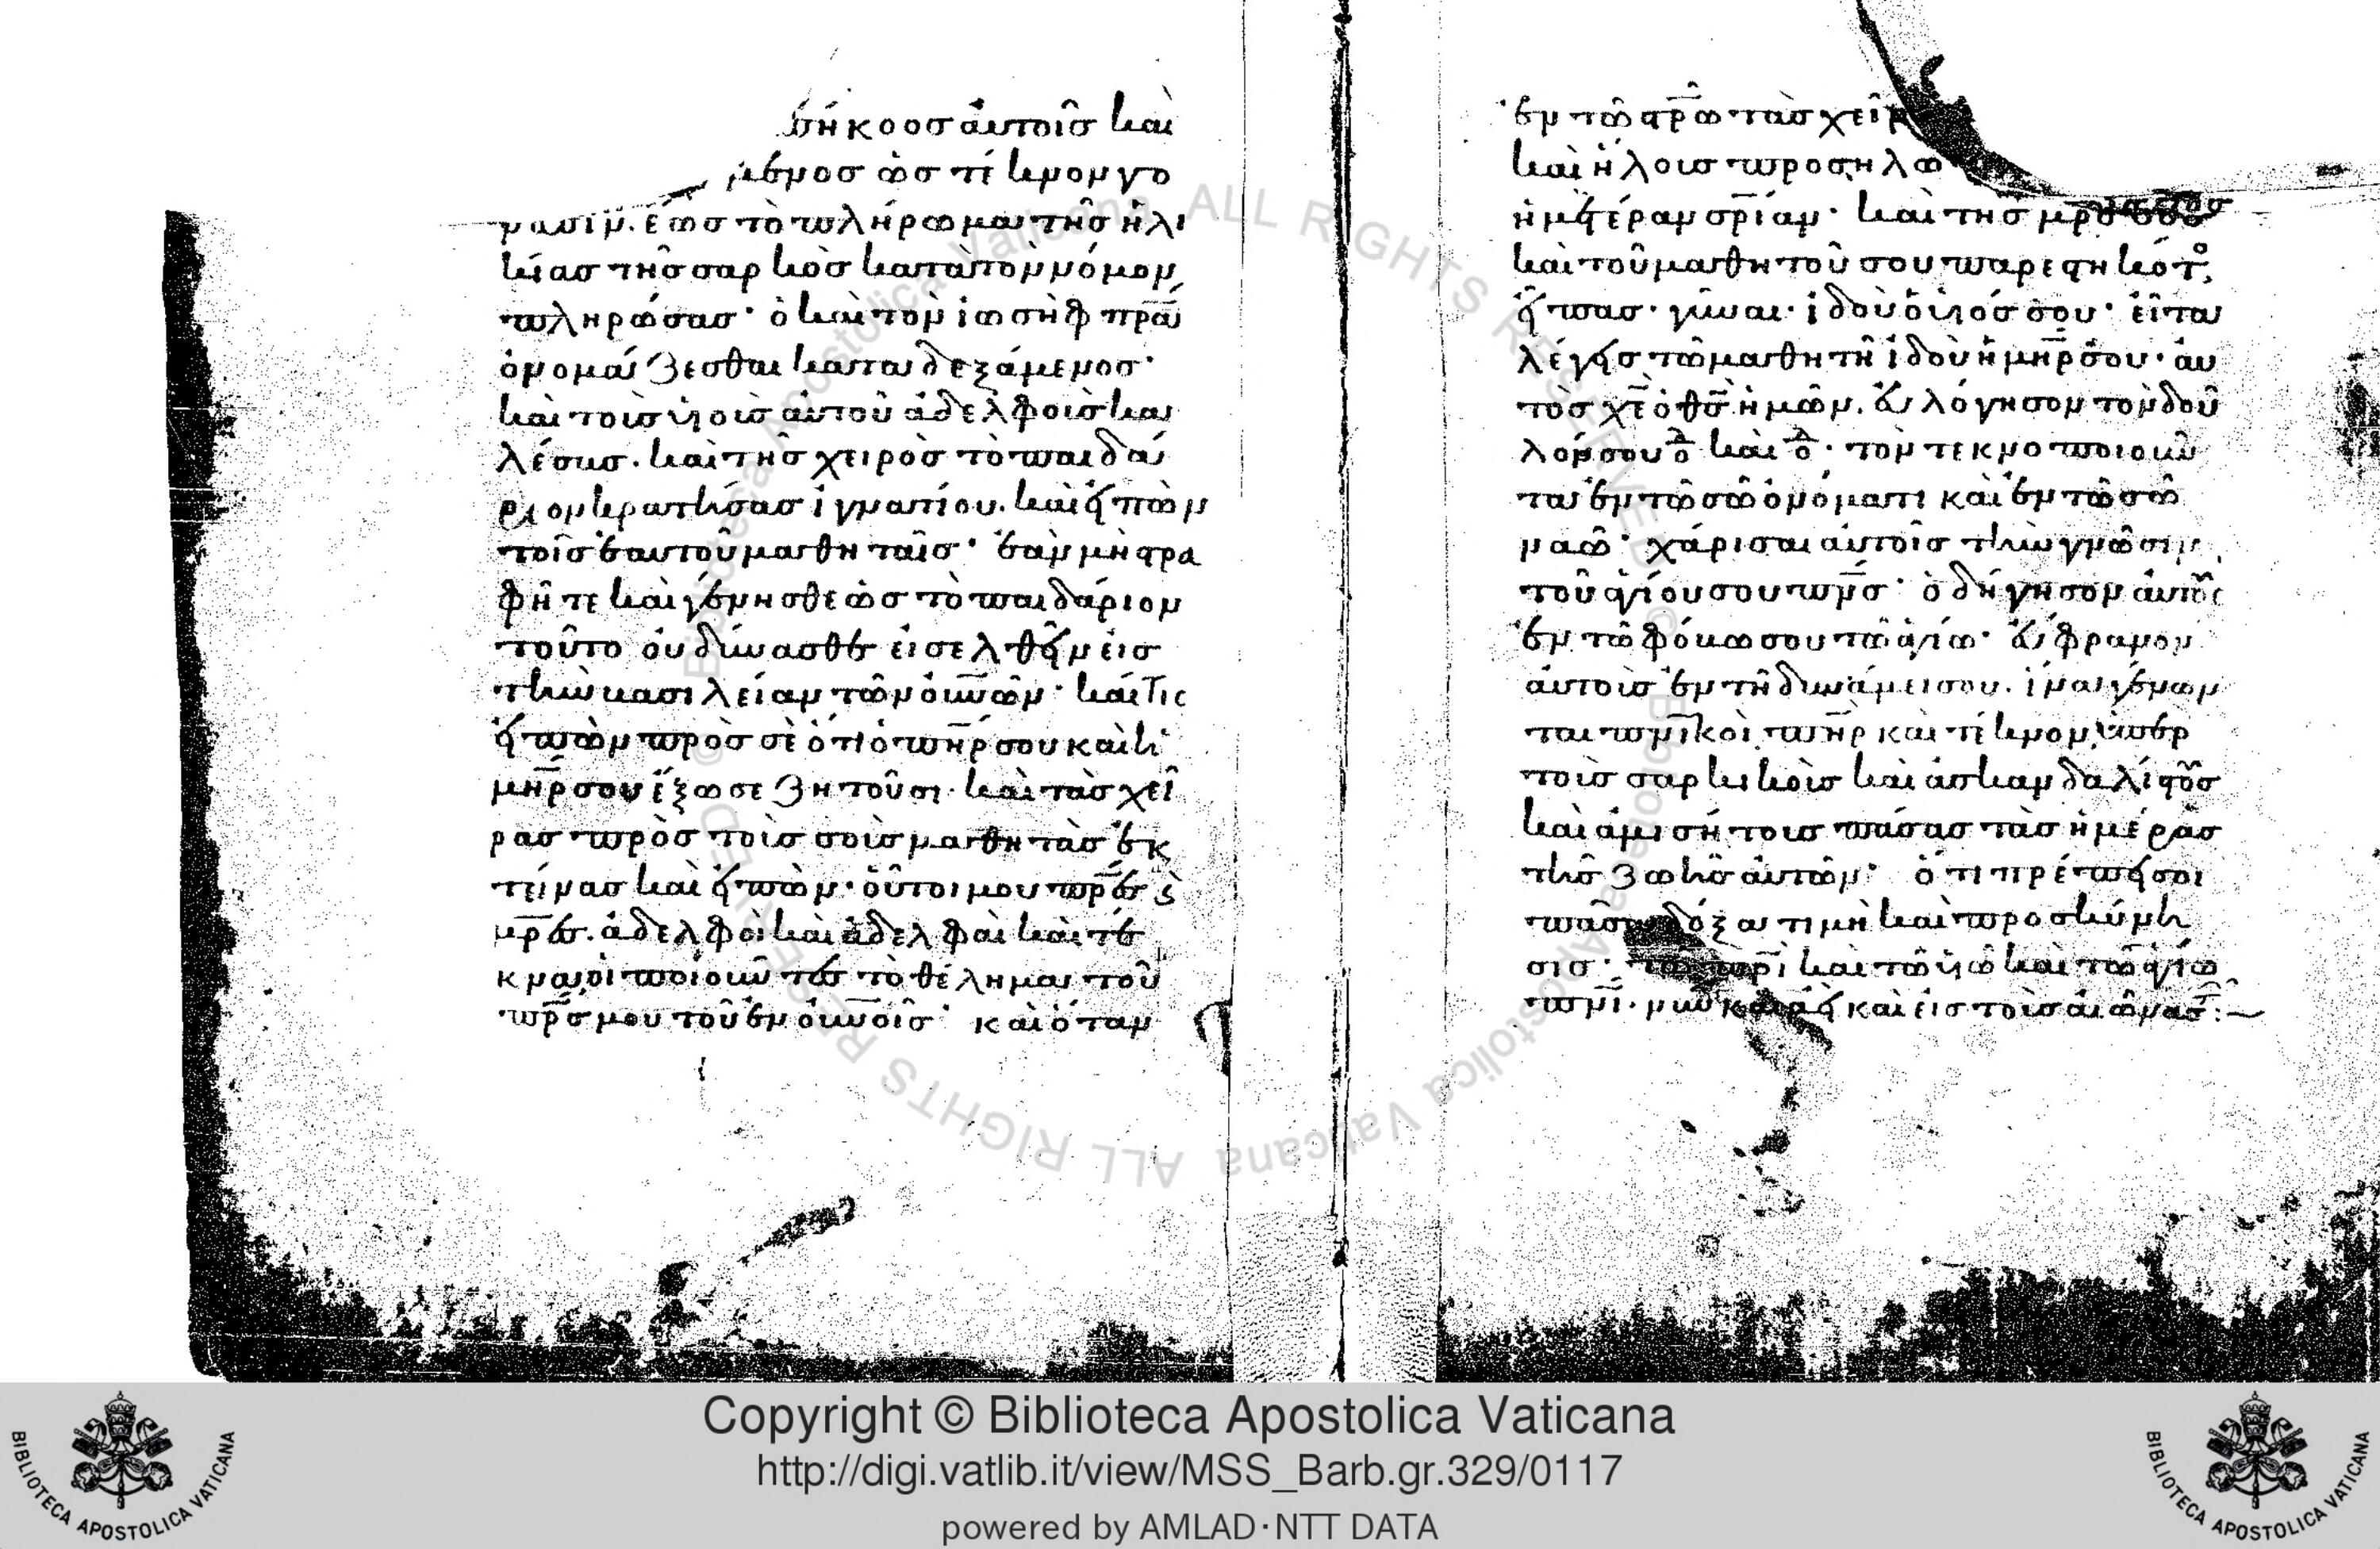 ὑπήκοος αὐτοῖς καὶ
μενος ὡς τέκνον γο
νασιν. ἕως τὸ πλήρωμα τῆς ἡλι
κίας τῆς σαρκὸς κατὰ τὸν νόμον
πληρώσας· ὁ καὶ τὸν ἰωσὴφ πρα
ὀνομάζεσθαι καταδεξάμενος·
καὶ τοὺς υἱοὺς αὐτοῦ ἀδελφοὺς κα
λέσας. καὶ τῆς χειρὸς τὸ παιδά
ριον κρατήσας ἰγνατίου. καὶ εἰπὼν
τοῖς ἑαυτοῦ μαθηταῖς· ἐὰν μὴ στρα
φῆτε καὶ γένησθε ὡς τὸ παιδάριον
τοῦτο οὐ δύνασθε εἰσελθεῖν εἰς
τὴν βασιλείαν τῶν οὐνῶν· καί τις
εἰπὼν πρὸς σὲ ὅτι ὁ πηρ σου καὶ ἡ
μηρ σου ἔξω σε ζητοῦσι· καὶ τὰς χεῖ
ρας πρὸς τοὺς σοὺς μαθητὰς ἐκ
τείνας καὶ εἰπὼν· οὗτοι μου πρες ϗ
μρες. ἀδελφοὶ καὶ ἀδελφαὶ καὶ τέ
κνα οἱ ποιοῦντες τὸ θέλημα τοῦ
πρς μου τοῦ ἐν οὐνοῖς· καὶ ὅταν
ἐν τῶ στρω τὰς χεῖρ
καὶ ἥλοις προσηλω
ἡμετέραν σρίαν· καὶ τῆς μρς σου
καὶ τοῦ μαθητοῦ σου παρεστηκότος
εἶπας· γύναι· ἰδοὺ ὁ υἱός σου· εἶτα
λέγεις τῶ μαθητῆ ἰδοὺ ἡ μηρ σου· αὐ
τὸς χε ὁ θς ἡμῶν. εὐλόγησον τὸν δοῦ
λόν σου ὁδ καὶ ὁδ· τὸν τεκνοποιοῦν
τα ἐν τῶ σῶ ὀνόματι καὶ ἐν τῶ σῶ
ναῶ· χάρισαι αὐτοῖς τὴν γνῶσιν
τοῦ ἁγίου σου πνς· ὁδήγησον αὐτοὺς
ἐν τῶ φόβω σου τῶ ἁγίω· εὔφρανον
αὐτοὺς ἐν τῆ δυνάμει σου. ἵνα γένων
ται πνικοὶ πηρ καὶ τέκνον ὑπὲρ
τοὺς σαρκικοὺς καὶ ἀσκανδαλίστους
καὶ ἀμισήτους πάσας τὰς ἡμέρας
τῆς ζωῆς αὐτῶν· ὅτι πρέπει σοι
πᾶσα δόξα τιμὴ καὶ προσκύνη
σις· τῶ πρὶ καὶ τῶ υἱῶ καὶ τῶ ἁγίω
πνι· νῦν καὶ ἀεὶ καὶ εἰς τοὺς αἰῶνας:~
Copyright © Biblioteca Apostolica Vaticana
http://digi.vatlib.it/view/MSS_Barb.gr.329/0117
powered by AMLAD·NTT DATA
BIBLIOTECA APOSTOLICA VATICANA
BIBLIOTECA APOSTOLICA VATICANA